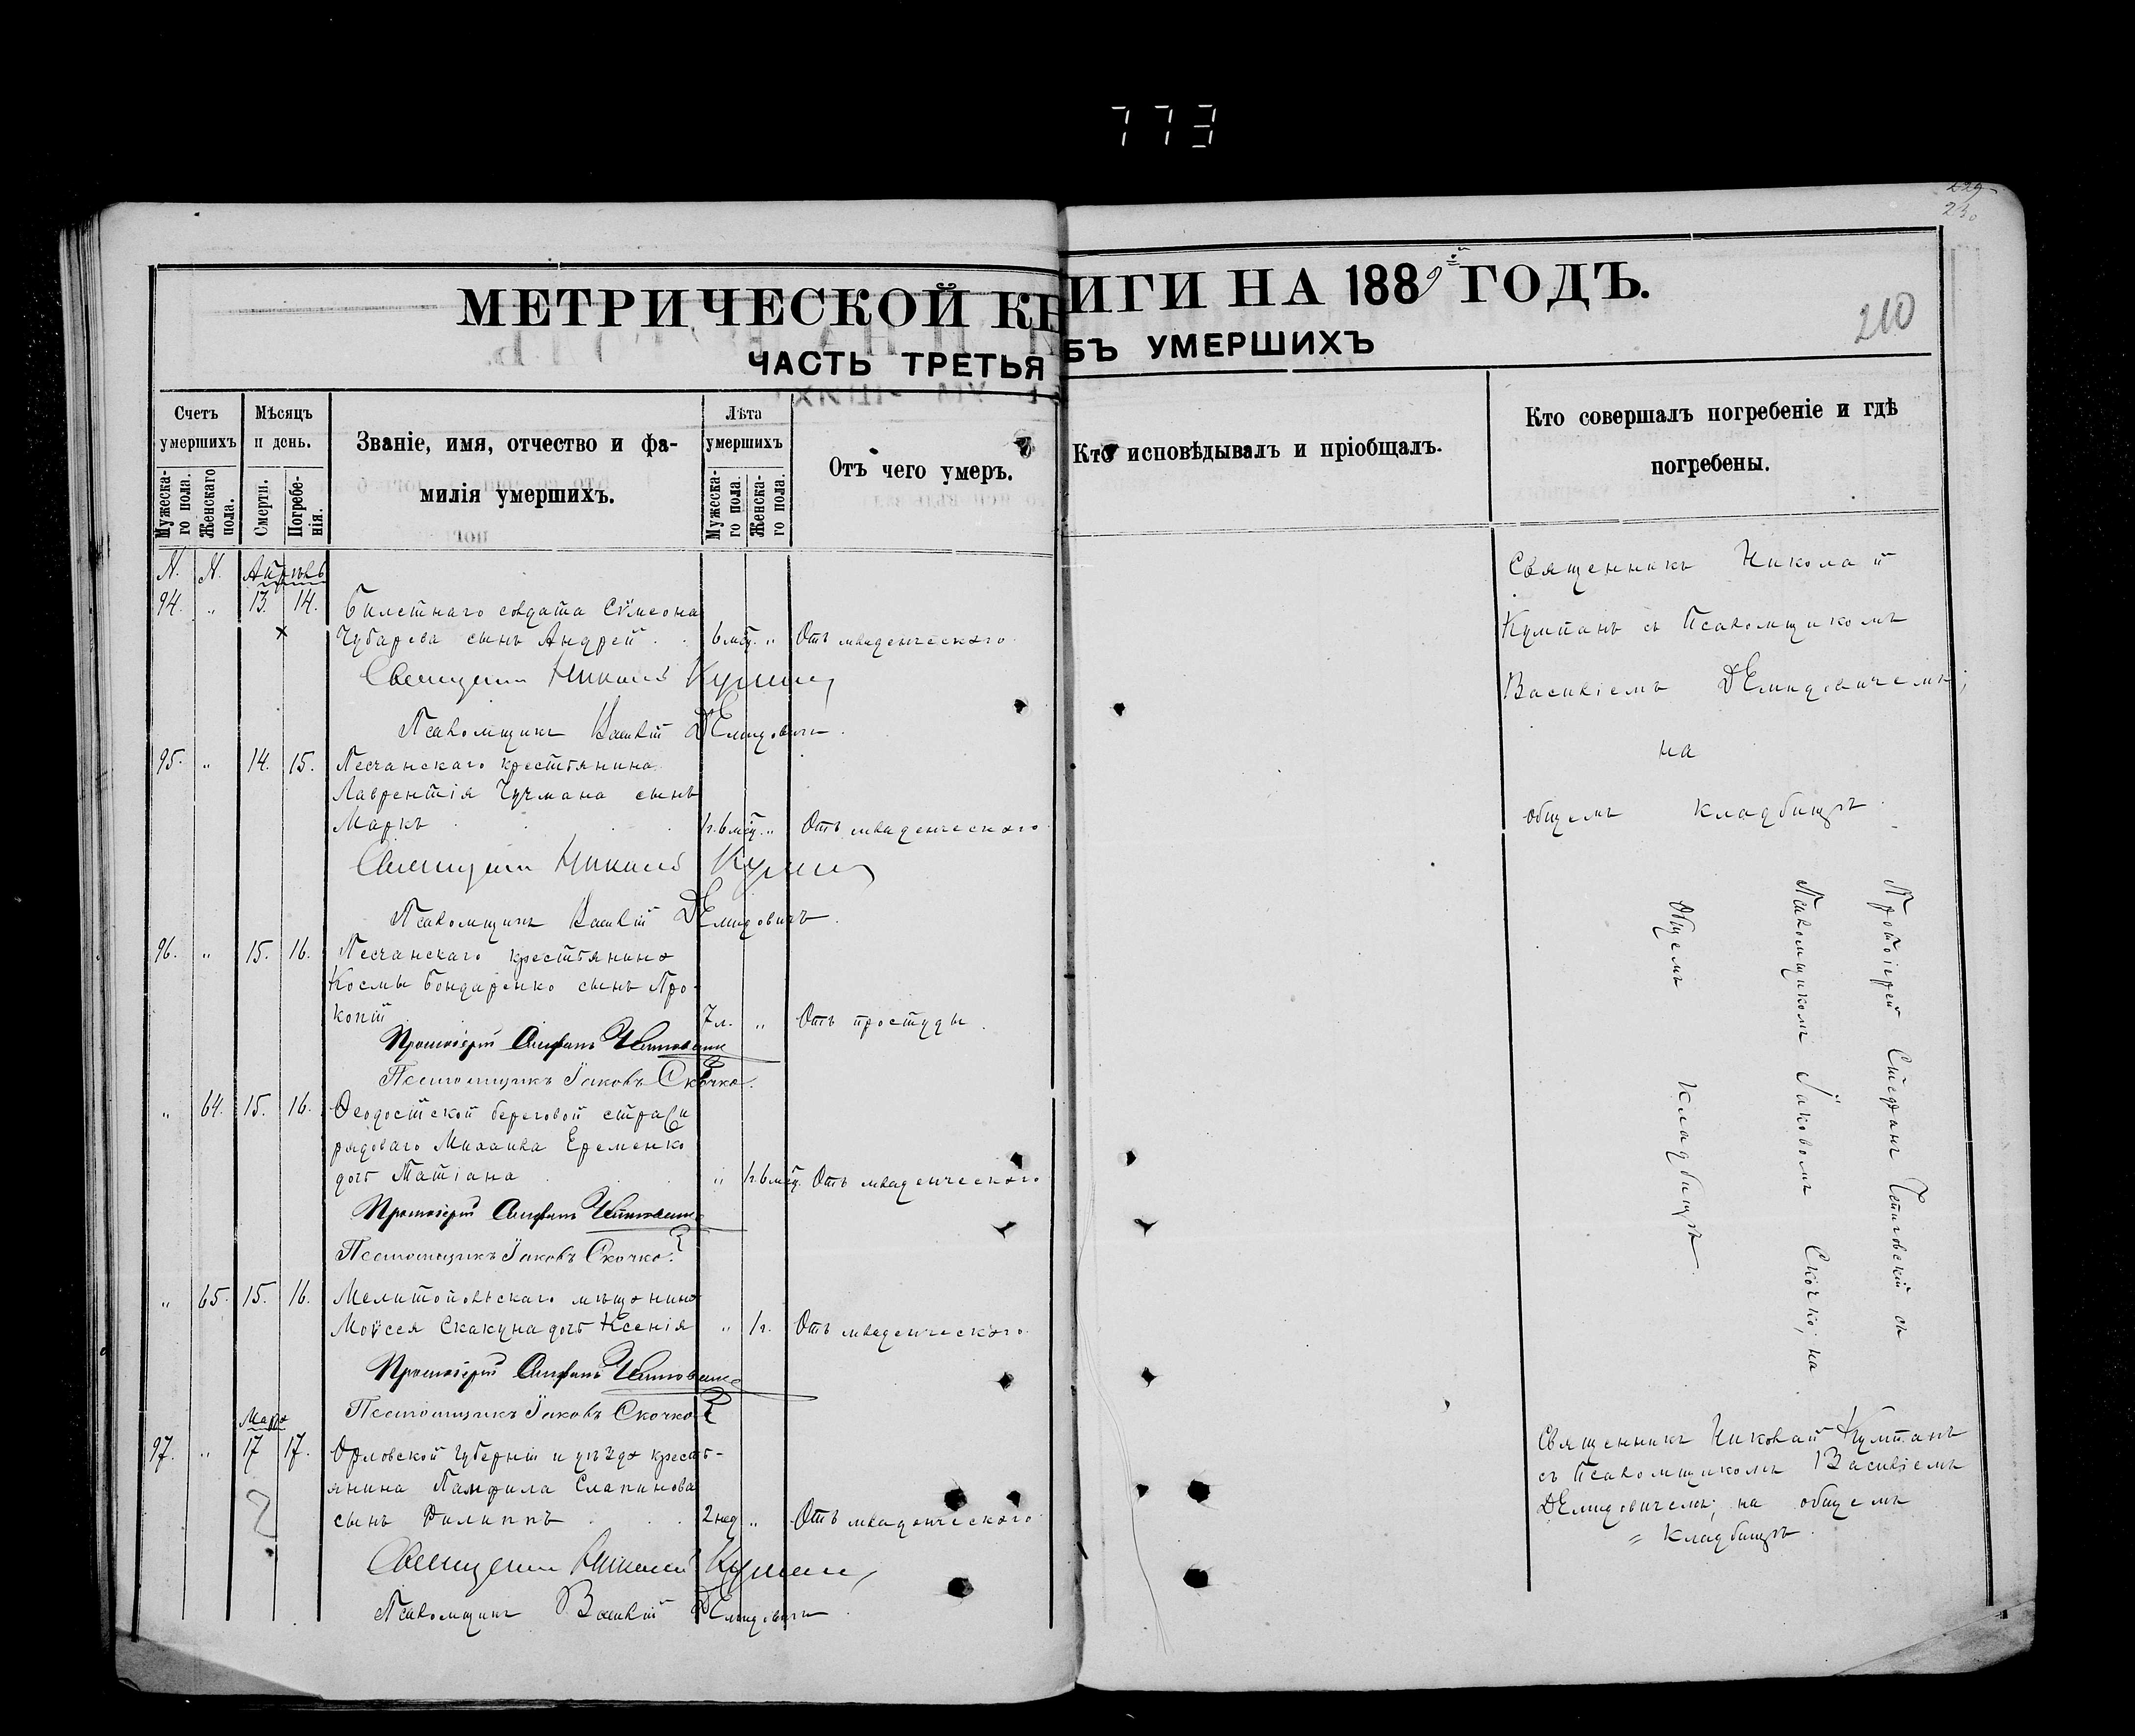 773
229
230
МЕТРИЧЕСКОЙ КНИГИ НА 1889й ГОДЪ.
210
ЧАСТЬ ТРЕТЬЯ БЪ УМЕРШИХЪ
Счетъ умершихъ
Мужеска-го пола.
Женскаго пола.
Мѣсяцъ и день.
Смерти.
Погребе-нія.
Званіе, имя, отчество и фа-
милія умершихъ.
Лѣта умершихъ
Мужеска-го пола.
Женска-го пола.
Отъ чего умеръ.
Кто исповѣдывалъ и пріобщалъ.
Кто совершалъ погребеніе и гдѣ
погребены.
N. N. Апрѣль
94. „ 13. 14. Билетнаго солдата Сѵмеона
Чубарева сынъ Андрей. 6 мѣц. „ Отъ младенческаго.
Священникъ Николай Кумпанъ
Псаломщикъ Василій Демидовичъ.
Священникъ Николай
Кумпанъ съ Псаломщикомъ
Василіемъ Демидовичемъ;
на
общемъ кладбищѣ.
95. „ 14. 15. Песчанскаго крестьянина
Лаврентія Чучмана сынъ
Маркъ 1г. 6 мѣц. „ Отъ младенческаго
Священникъ Николай Кумпанъ
Псаломщикъ Василій Демидовичъ.
96. „ 15. 16. Песчанскаго крестьянина
Космы Бондаренко сынъ Про-
копій 7 л. „ Отъ простуды.
Протоіерей Стефанъ
Псаломщикъ Іаковъ Скочко.
„ 64. 15. 16. Ѳеодосійской береговой стражи
рядоваго Михаила Еременко
дочь Татіана „ 1г. 6 мѣц. Отъ младенческаго
Протоіерей Стефанъ
Псаломщикъ Іаковъ Скочко.
„ 65. 15. 16. Мелитопольскаго мѣщанина
Моѵсея Скакуна дочь Ксенія „ 1г. Отъ младенческаго.
Протоіерей Стефанъ
Псаломщикъ Іаковъ Скочко
Протоіерей Стефанъ съ
Псаломщикомъ Іаковомъ Скочко; на
Общемъ кладбищѣ.
Мар
97. „ 17 17. Орловской губерніи и уѣзда кресть-
янина Памфила Слапинова
сынъ Филиппъ 2 нед „ Отъ младенческаго
Священникъ Николай Кумпанъ
Псаломщикъ Василій Демидовичъ
Священникъ Николай Кумпанъ
съ Псаломщикомъ Василіемъ
Демидовичемъ; на общемъ
кладбищѣ.